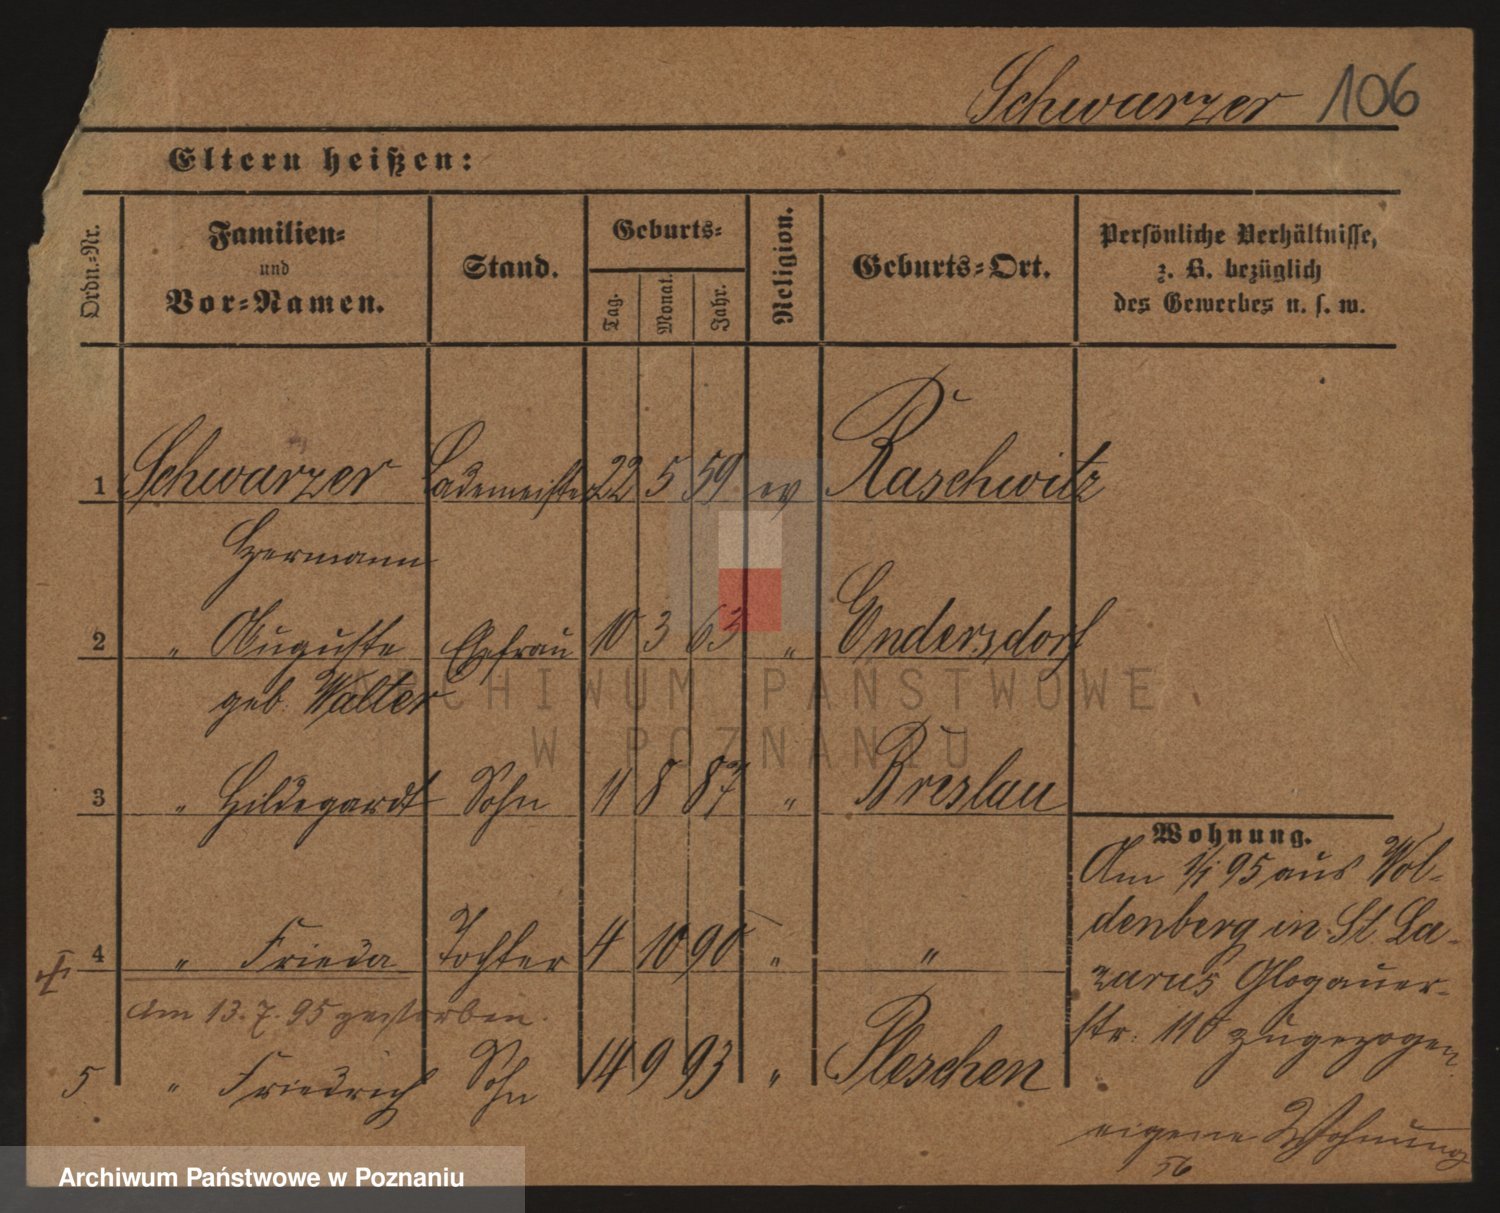 Schwarzer 106
Eltern heißen:
Ordn.-Nr.
Familien-
und
Vor-Namen.
Stand.
Geburts-
Tag.
Monat.
Jahr.
Religion.
Geburts-Ort.
Persönliche Verhältnisse,
z. B. bezüglich
des Gewerbes u. s. w.
1 Schwarzer Lademeister 22 5 59 ev Raschwitz
Hermann
2 " Auguste Ehefrau 10 3 63 " Endersdorf
geb. Walter
3 " Hildegardt Sohn 11 8 87 " Breslau
4 " Frieda Tochter 4 10 90 " "
Am 13.7.95 gestorben.
5 " Friedrich Sohn 14 9 93 " Pleschen
Wohnung.
Am 1/1 95 aus Wol-
denberg in St. La-
zarus Glogauer-
str. 110 zugezogen
eigene Wohnung
56
ARCHIWUM PAŃSTWOWE
W POZNANIU
Archiwum Państwowe w Poznaniu